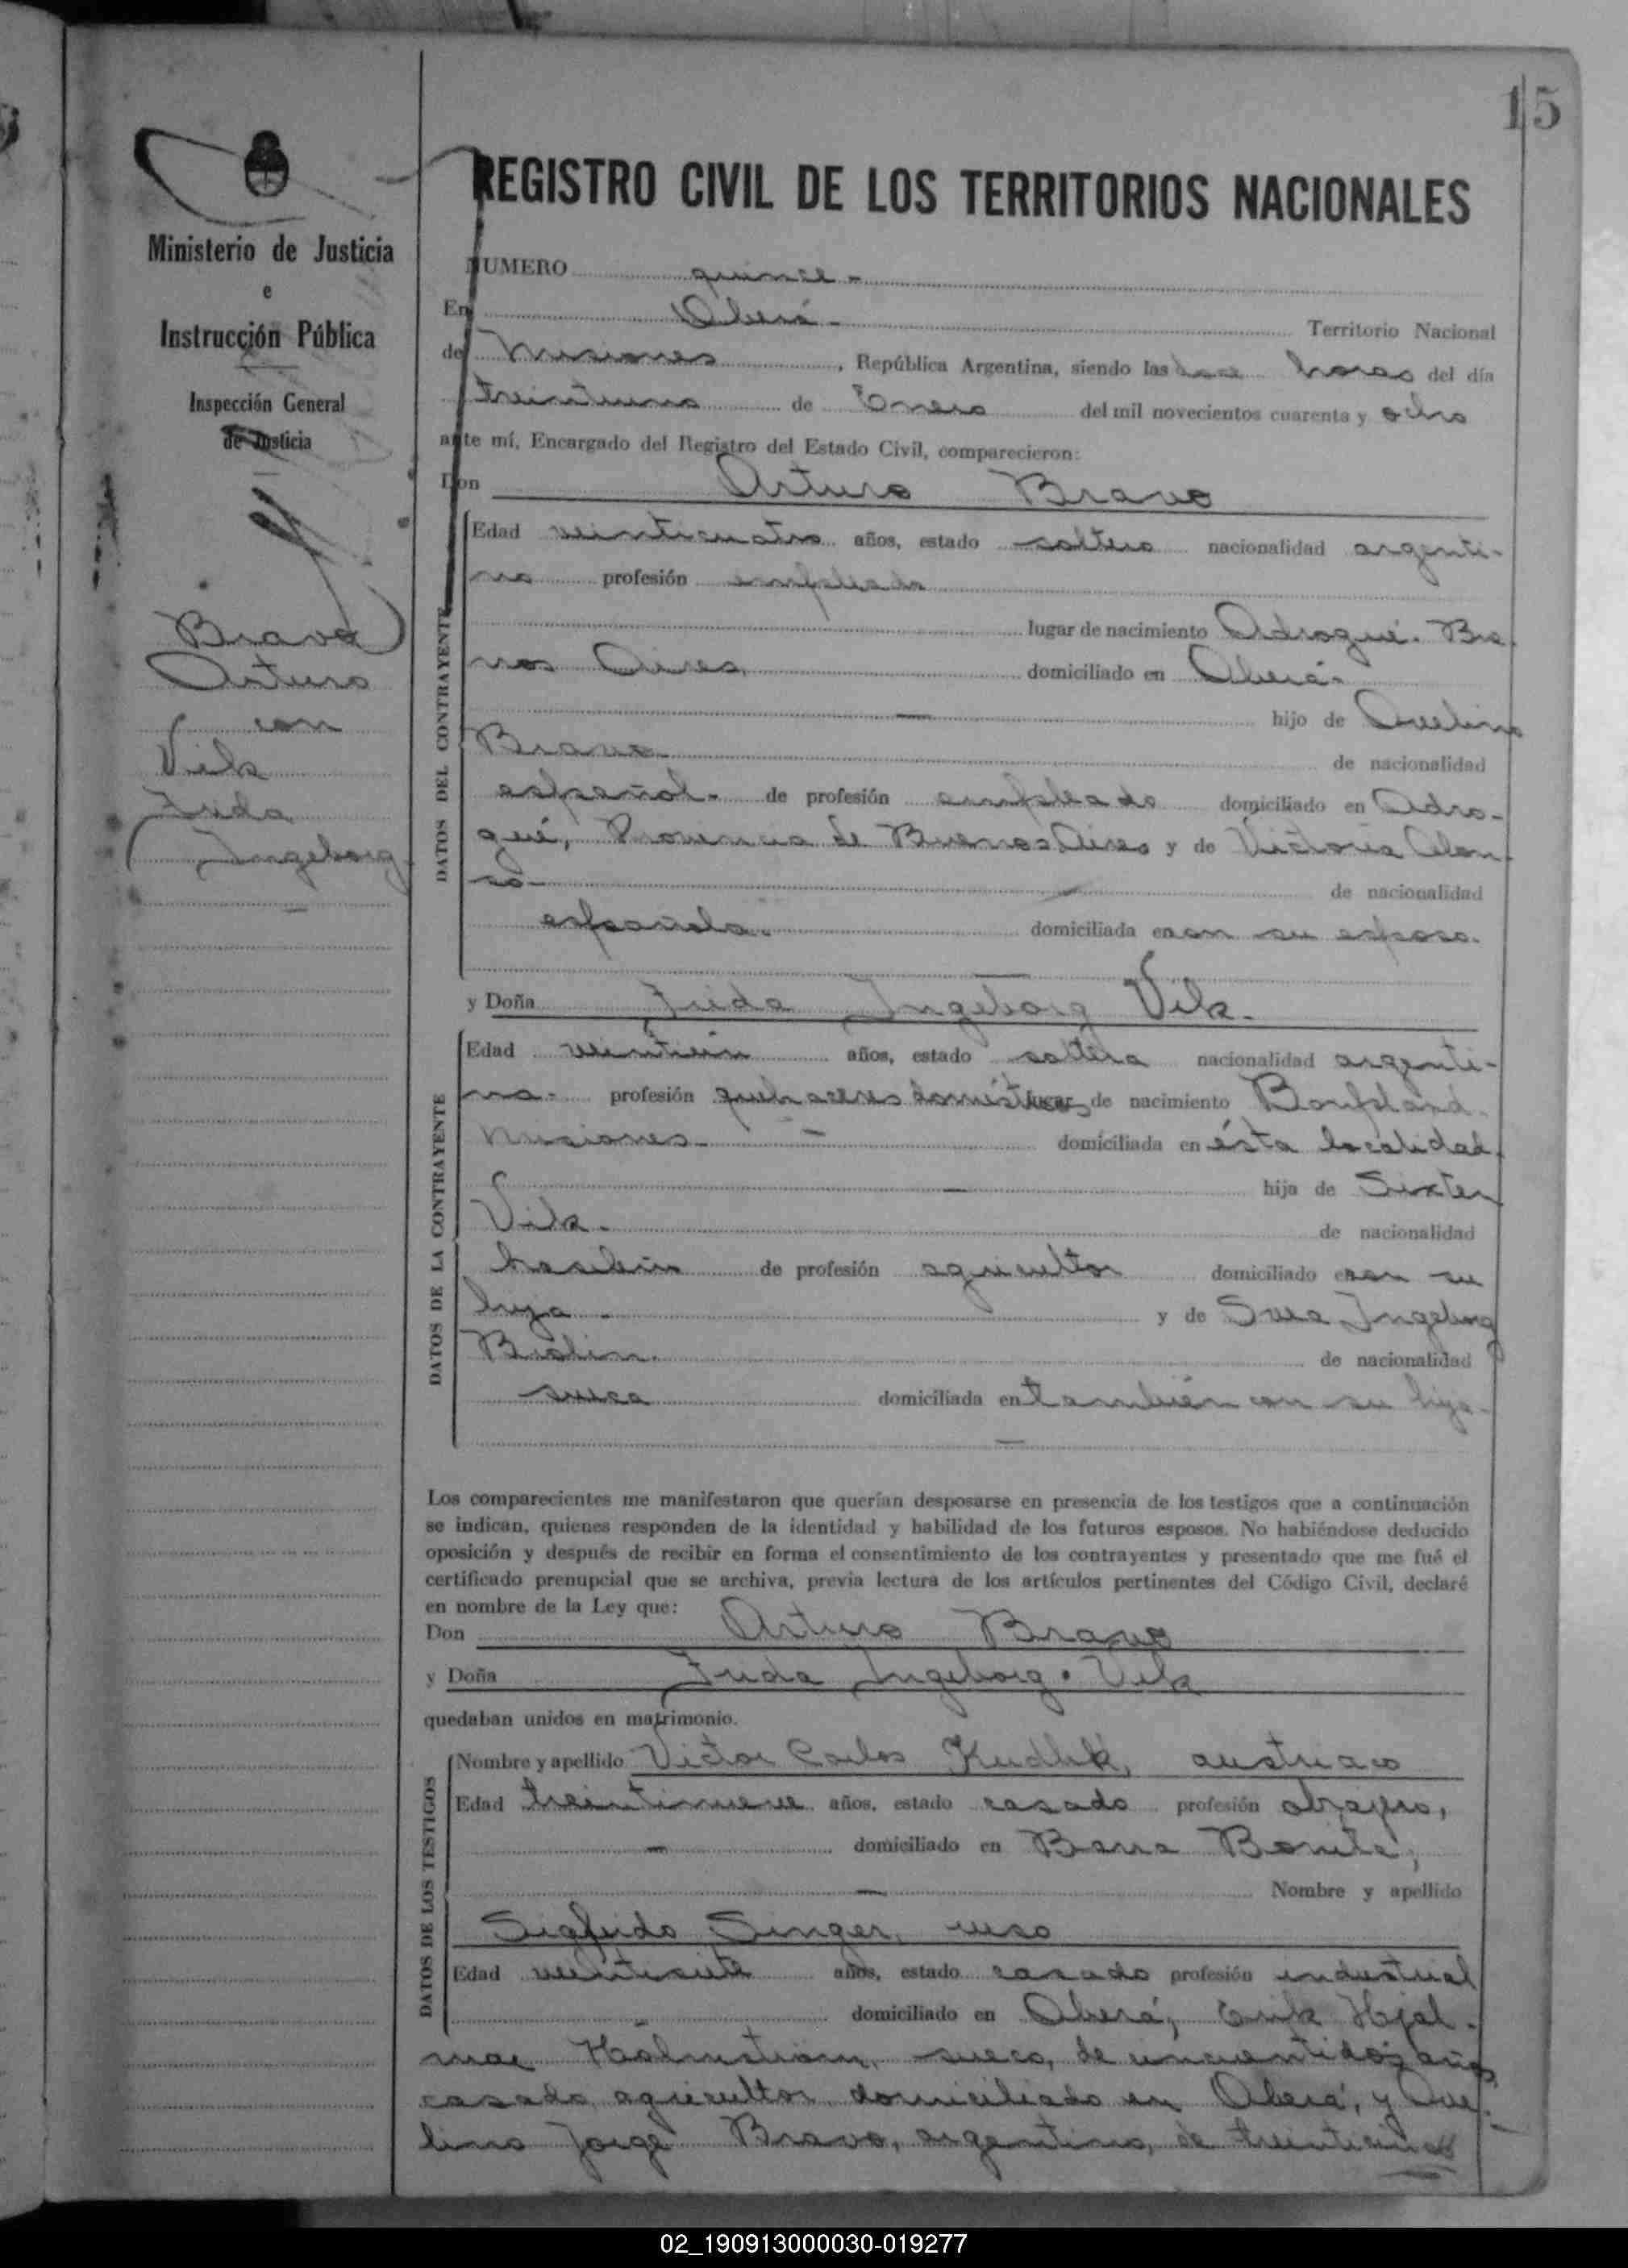 15
Ministerio de Justicia
e
Instrucción Pública
Inspección General
de Justicia
Bravo
Arturo
con
Vik
Frida
Ingeborg
REGISTRO CIVIL DE LOS TERRITORIOS NACIONALES
NUMERO quince-
En Oberá- Territorio Nacional
de Misiones, República Argentina, siendo las doce horas del día
treintiuno de Enero del mil novecientos cuarenta y ocho
ante mí, Encargado del Registro del Estado Civil, comparecieron:
Don Arturo Bravo
DATOS DEL CONTRAYENTE
Edad veinticuatro años, estado soltero nacionalidad argenti-
no profesión empleado
lugar de nacimiento Adrogué. Bue
nos Aires, domiciliado en Oberá-
hijo de Avelino
Bravo- de nacionalidad
español- de profesión empleado domiciliado en Adro-
gué, Provincia de Buenos Aires y de Victoria Alon-
so- de nacionalidad
española- domiciliada en con su esposo.
y Doña Frida Ingeborg Vik-
DATOS DE LA CONTRAYENTE
Edad veintiún años, estado soltera nacionalidad argenti-
na- profesión quehaceres domésticos lugar de nacimiento Bonpland-
Misiones- domiciliada en ésta localidad,
hija de Sixten
Vik- de nacionalidad
de profesión agricultor domiciliado en con su
hija- y de Svea Ingeborg
de nacionalidad
sueca domiciliada en también con su hija-
Los comparecientes me manifestaron que querían desposarse en presencia de los testigos que a continuación
se indican, quienes responden de la identidad y habilidad de los futuros esposos. No habiéndose deducido
oposición y después de recibir en forma el consentimiento de los contrayentes y presentado que me fué el
certificado prenupcial que se archiva, previa lectura de los artículos pertinentes del Código Civil, declaré
en nombre de la Ley que:
Don Arturo Bravo
y Doña Frida Ingeborg Vik
quedaban unidos en matrimonio.
DATOS DE LOS TESTIGOS
Nombre y apellido Victor Carlos austriaco
Edad treintinueve años, estado casado profesión
domiciliado en Barra Bonita,
Nombre y apellido
Sigfrido Singer, ruso
Edad veintisiete años, estado casado profesión industrial
domiciliado en Oberá, Erik Hjal-
mar sueco, de cincuentidós años
casado agricultor domiciliado en Oberá, y Ave-
lino Jorge Bravo, argentino, de
02_190913000030-019277